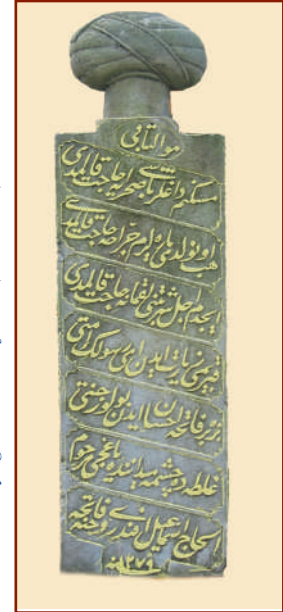 هو الباقی
مسکنم داغلر باشی صحرایه حاجت قالمدی
هپ اونولدی یاره لرم جراحه حاجت قالمدی
ایچدم اجل شربتنی لقمانه حاجت قالمدی
قبرمی زیارت ایدن ای رسولک امتی
بر فاتحه احسان ایدن بولور جنتی
غلطه ده چشمه میداننده یاغجی مرحوم
الحاج اسماعیل افندی روحنه فاتحه
سنه ١٢٧٩